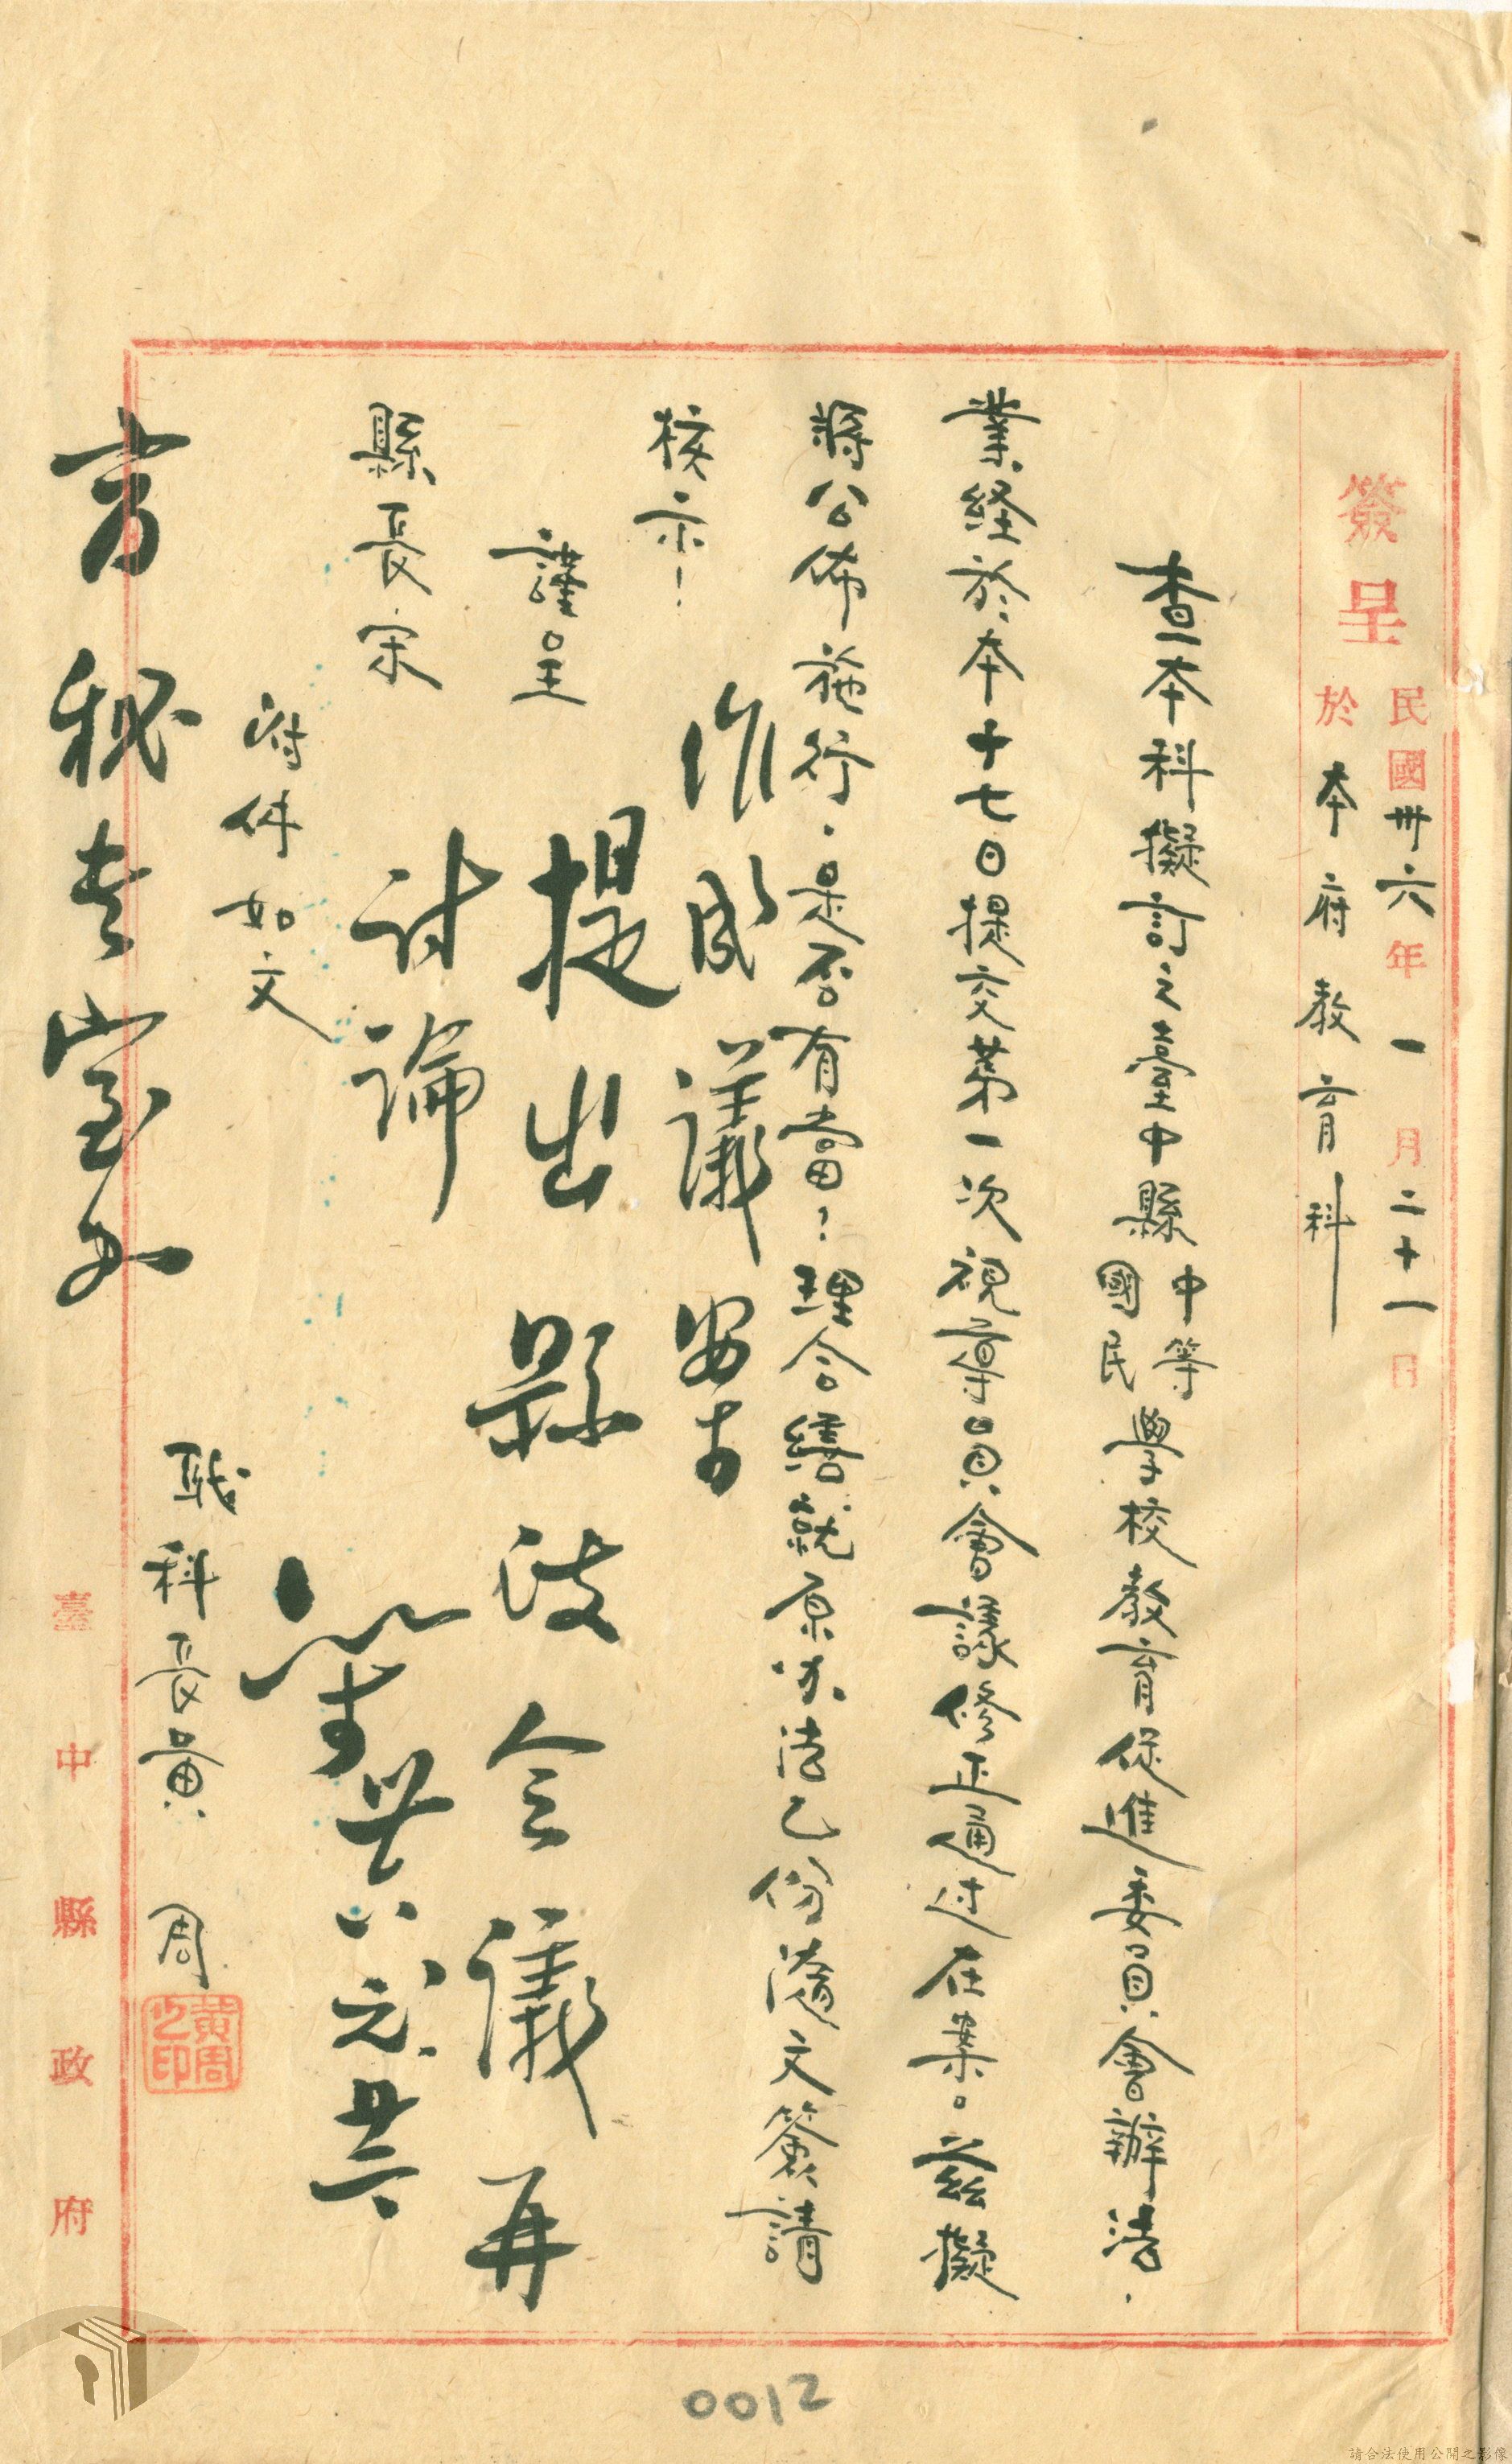 簽呈
民國卅六年一月二十一日
於本府教育科
查本科擬訂之臺中縣中等國民學校教育促進委員會辦法，
業経於本十七日提交第一次視導員會議修正通过在案。茲擬
將公佈施行，是否有當？理合繕就原办法乙份隨文簽請
核示！
謹呈
縣長宋
附件如文
職科長黃周
黃周之印
作成議案
提出縣政会議再
討論
秘書室
臺中縣政府
0012
請合法使用公開之影像